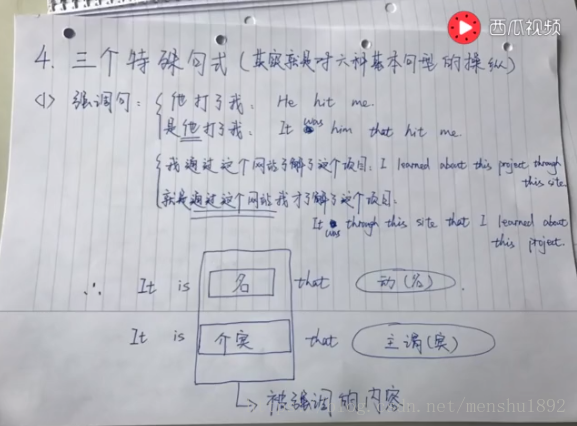 西瓜视频
4. 三个特殊句式（其实就是对六种基本句型的操纵）
<1> 强调句：他打了我： He hit me.
是他打了我： It was him that hit me.
我通过这个网站了解了这个项目：I learned about this project through
this site
就是通过这个网站我才了解了这个项目.
It was through this site that I learned about
this project.
∴ It is 名 that 动(名).
It is 介宾 that 主谓(宾)
被强调的内容
csdn.net/menshu1892